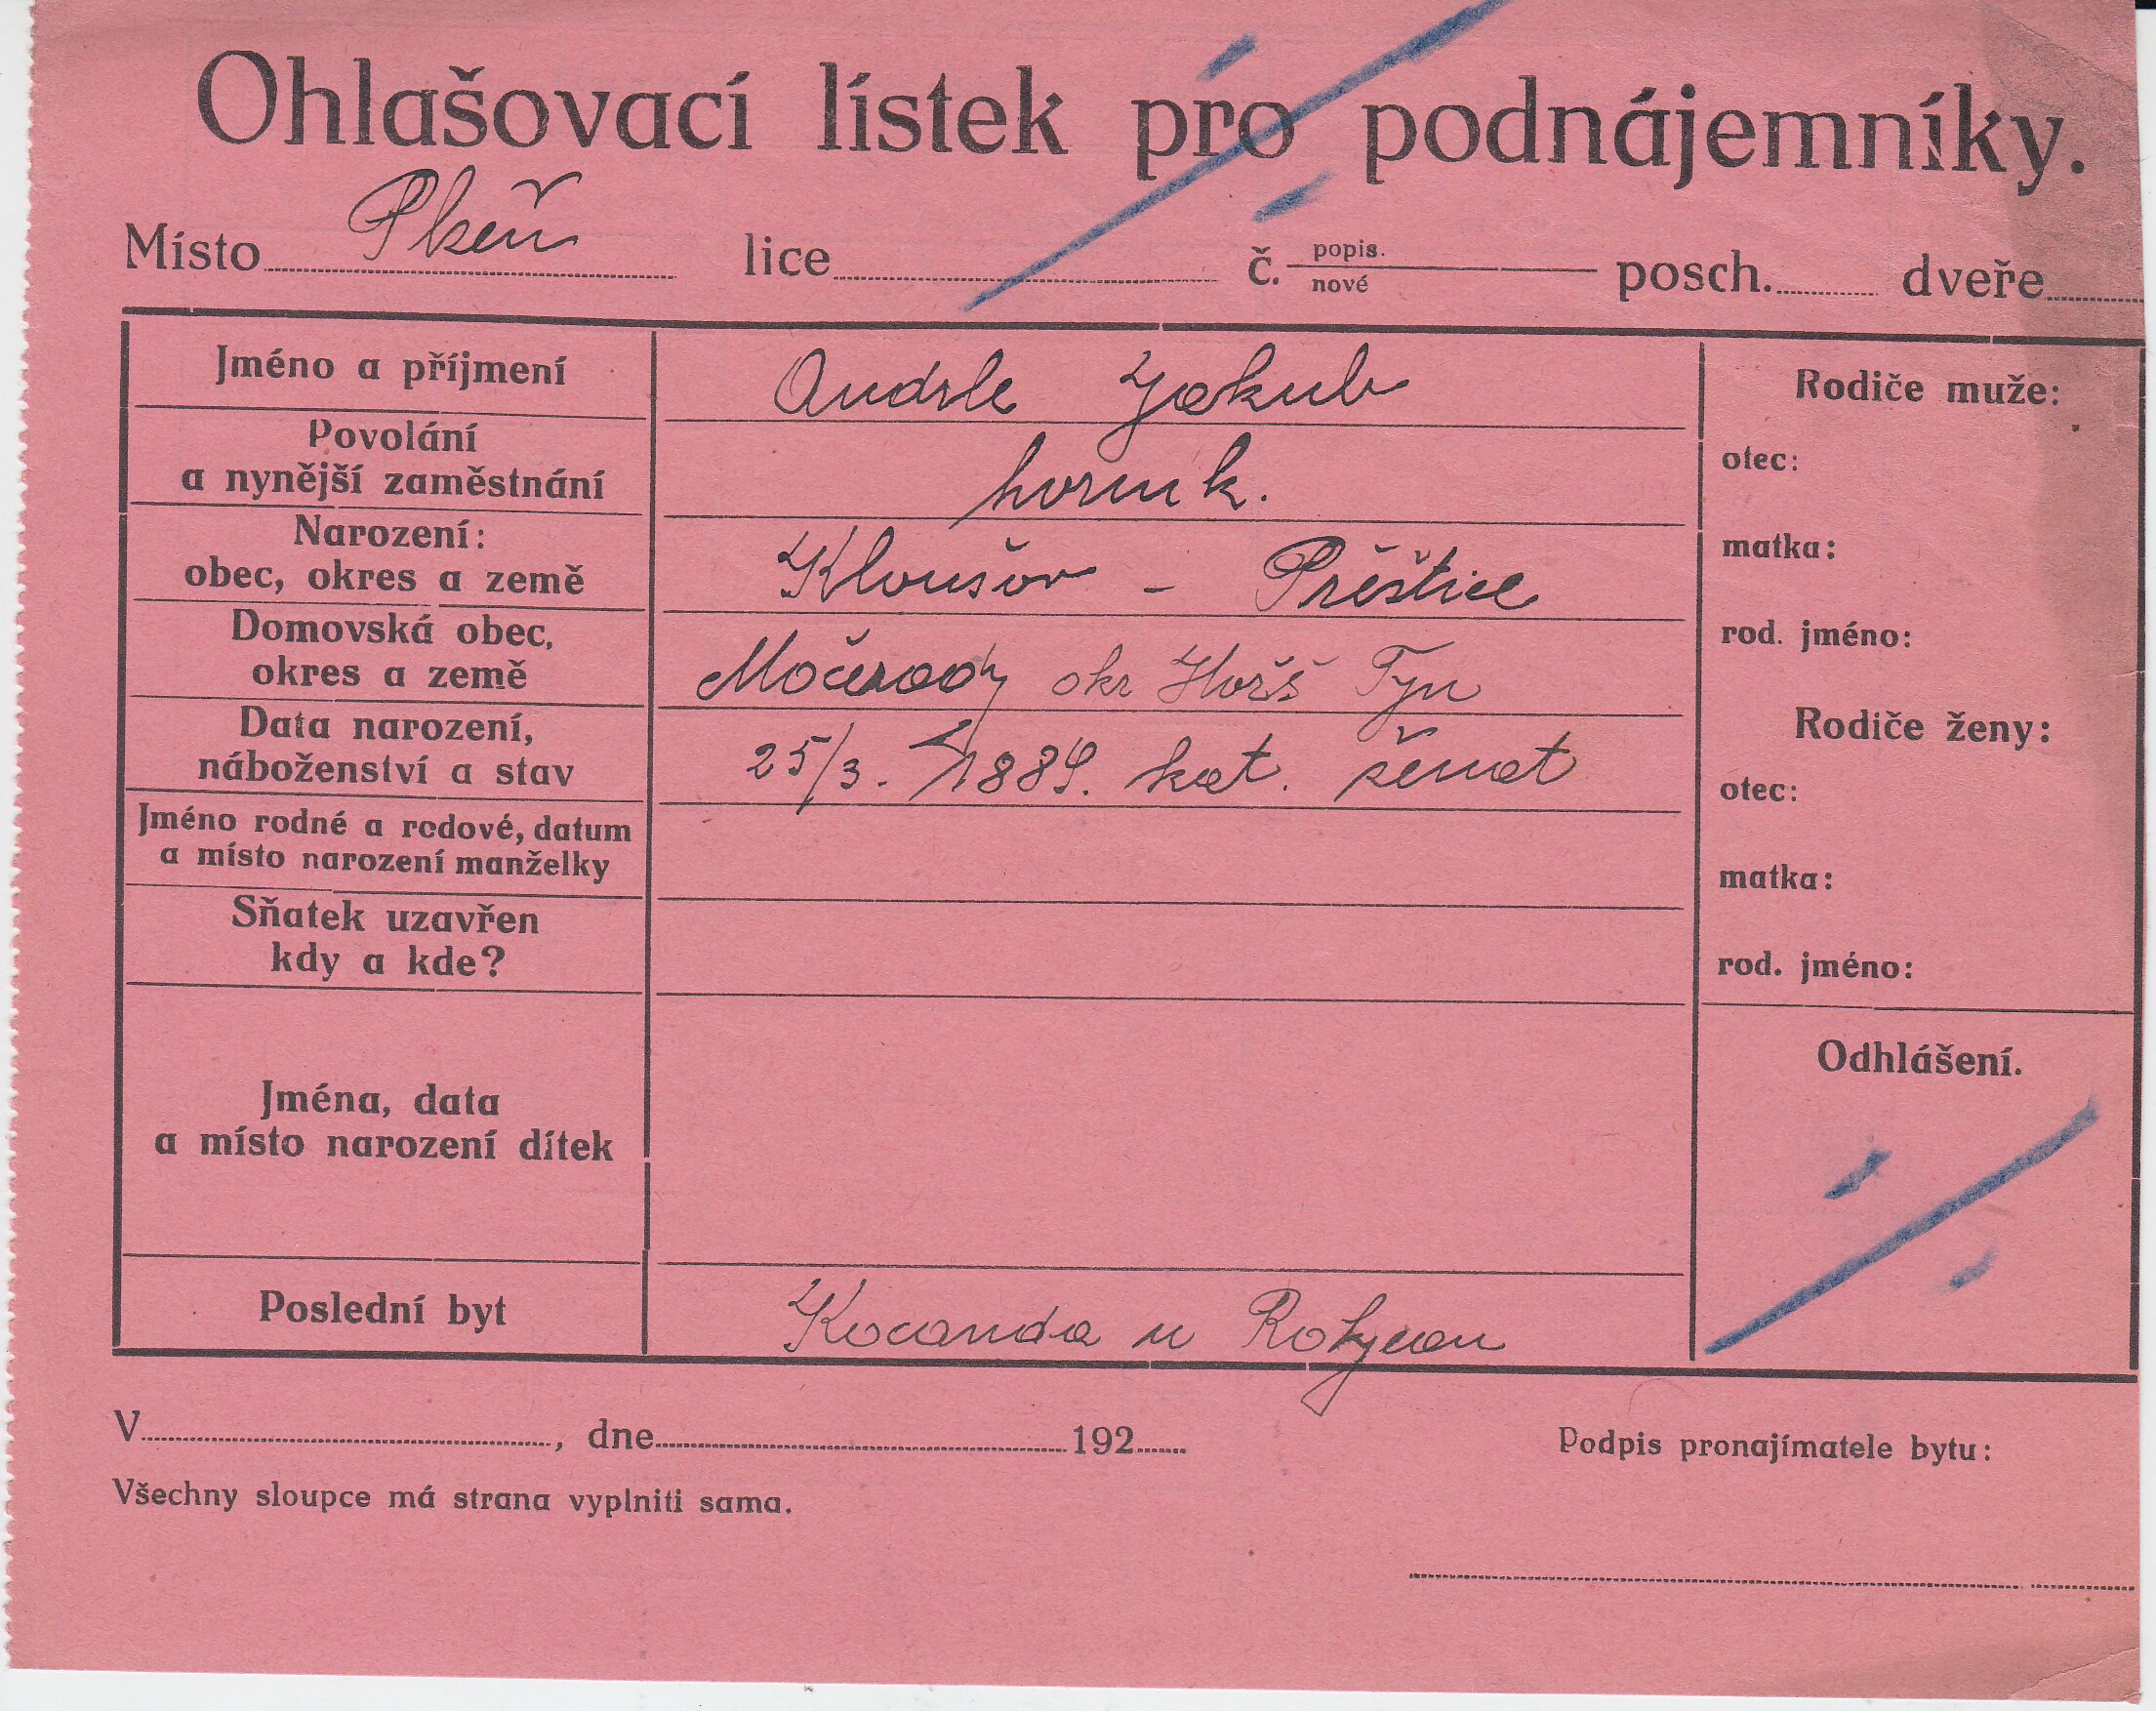 Ohlašovací lístek pro podnájemníky.
Místo Plzeň lice č. popis. nové posch. dveře
Jméno a příjmení Andrle Jakub
Povolání
a nynější zaměstnání horník.
Narození:
obec, okres a země Kloušov - Přěštice
Domovská obec,
okres a země Močerady okr Horš Týn
Data narození,
náboženství a stav 25/3. 1889. kat. ženat
Jméno rodné a rodové, datum
a místo narození manželky
Sňatek uzavřen
kdy a kde?
Jména, data
a místo narození dítek
Poslední byt Kocanda u Rokycan
Rodiče muže:
otec:
matka:
rod. jméno:
Rodiče ženy:
otec:
matka:
rod. jméno:
Odhlášení.
V , dne 192
Podpis pronajímatele bytu:
Všechny sloupce má strana vyplniti sama.